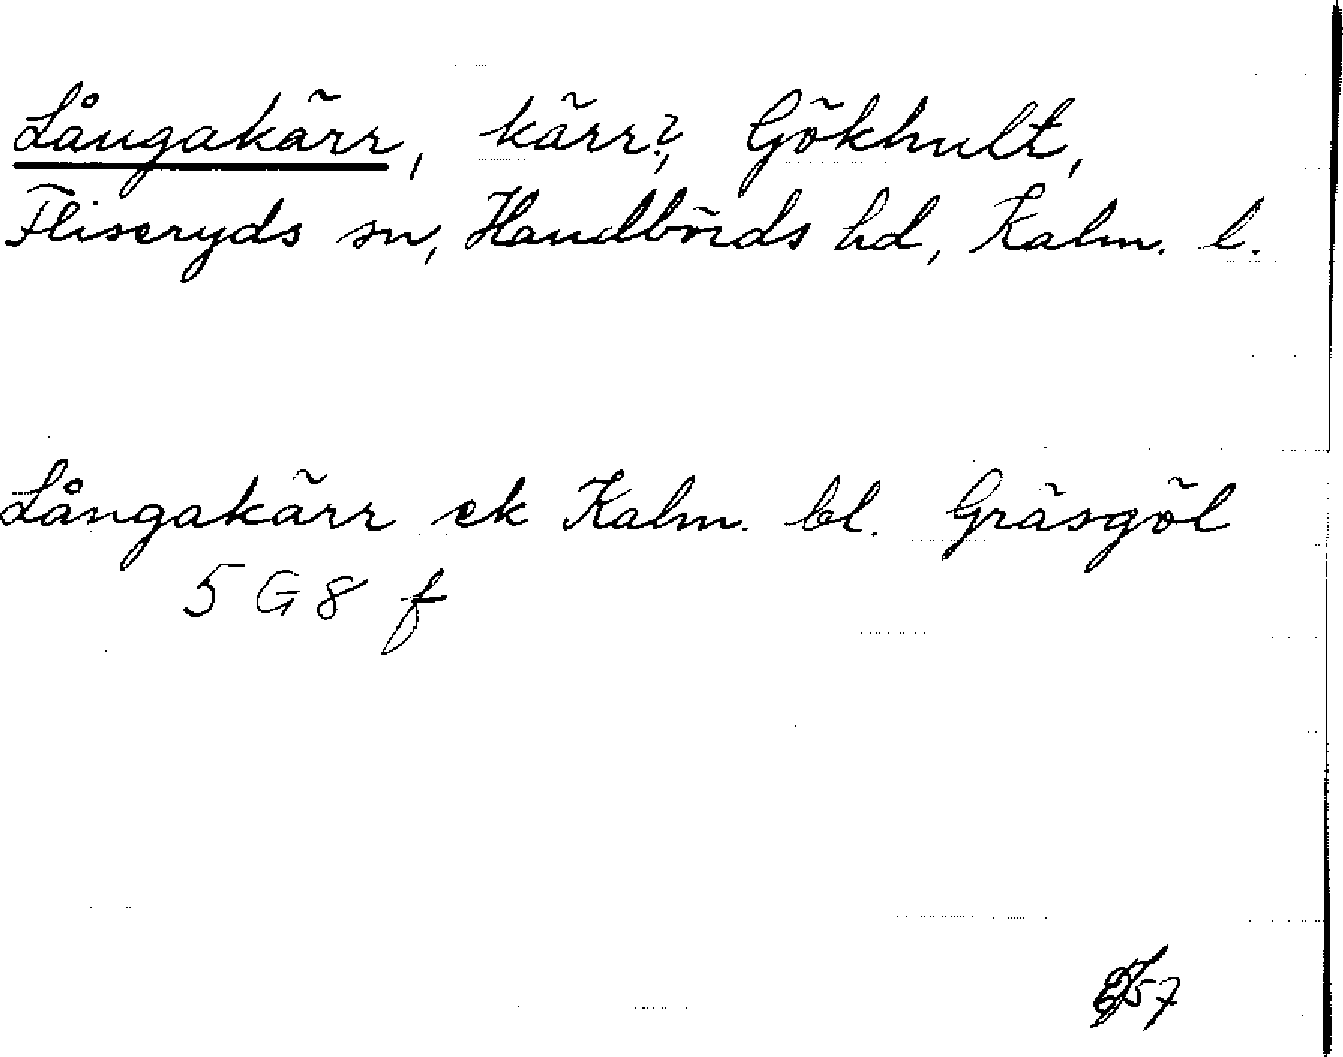 Långakärr, kärr?, Gökhult,
Fliseryds sn, Handbörds hd, Kalm. l.
Långakärr ek Kalm. bl. Gräsgöl
5 G 8 f
57